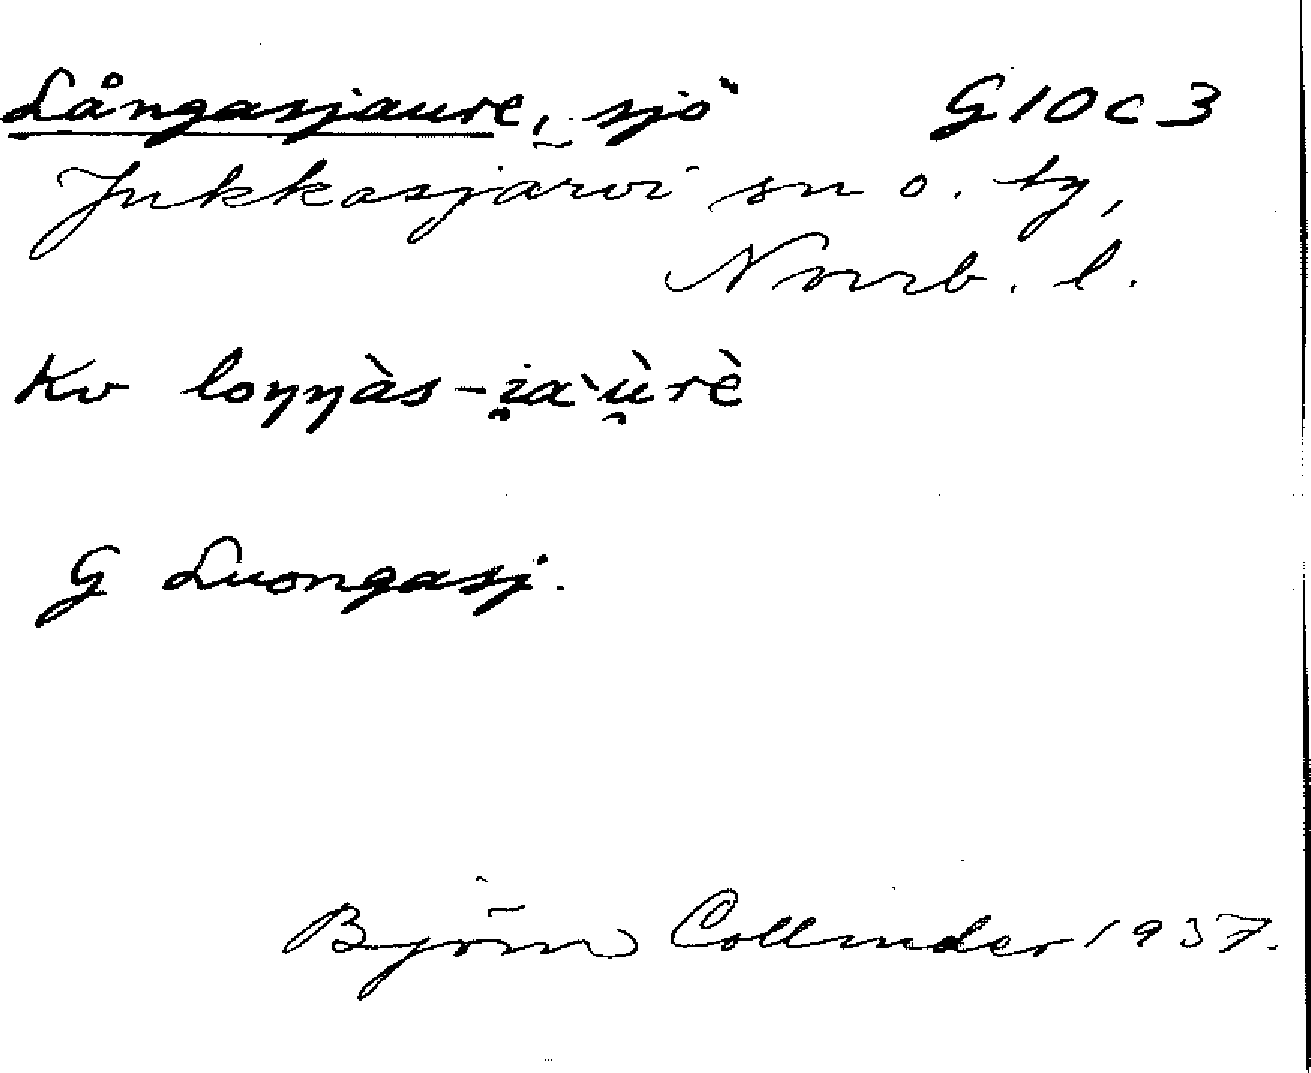 Långasjaure, sjö G10c3
Jukkasjärvi sn o. tg,
Norrb. l.
Kv loŋŋàs-i̯a`ù̯rè
G Luongasj.
Björn Collinder 1937.